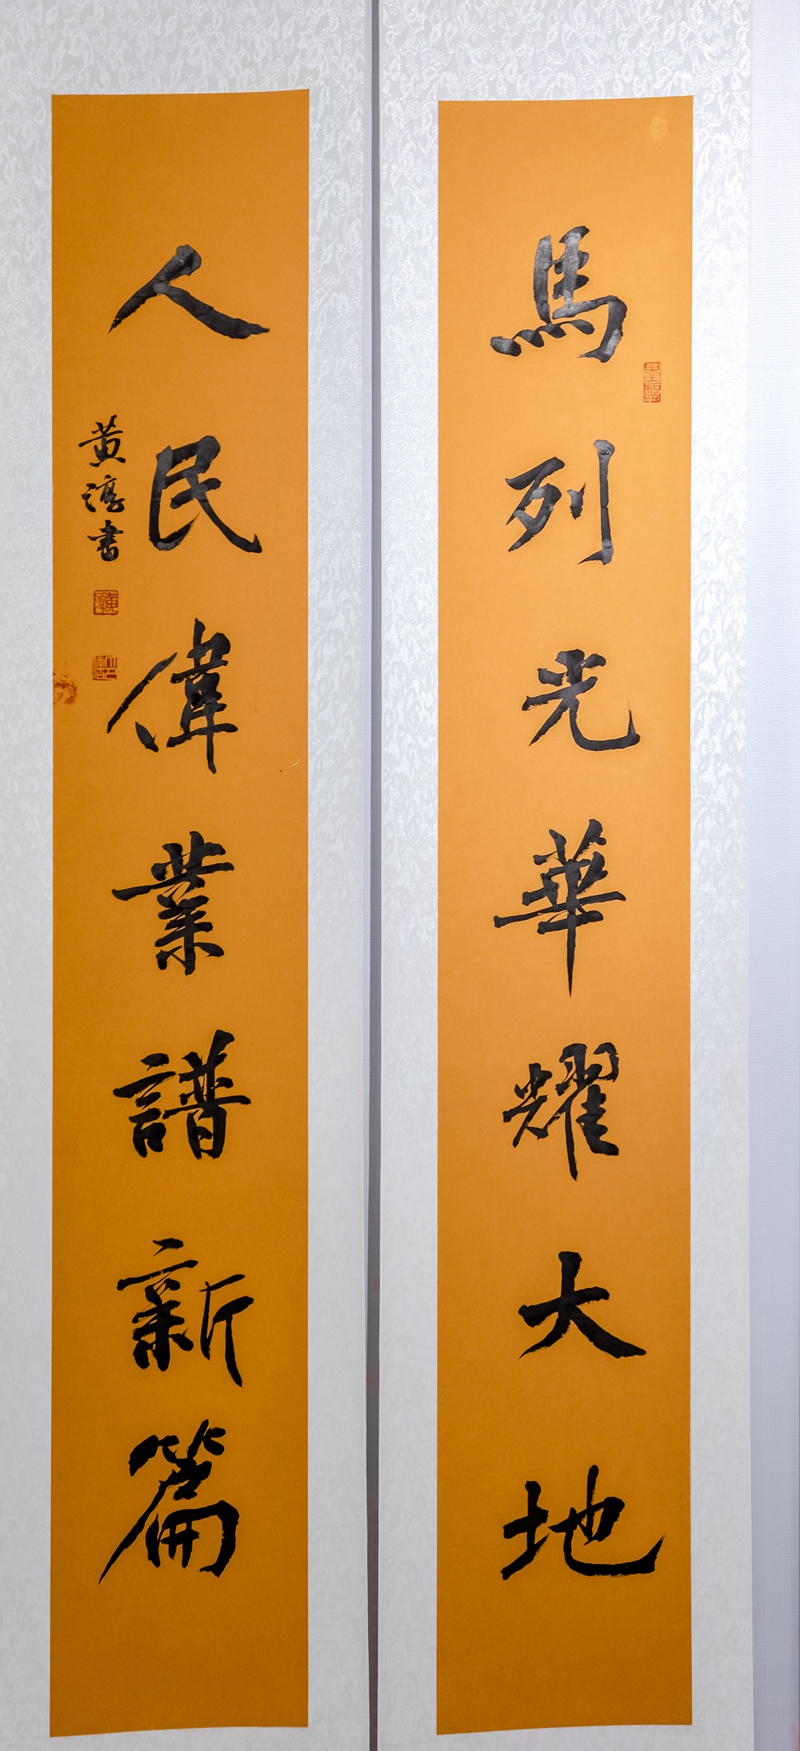 馬列光華耀大地
人民偉業譜新篇
黄淳書